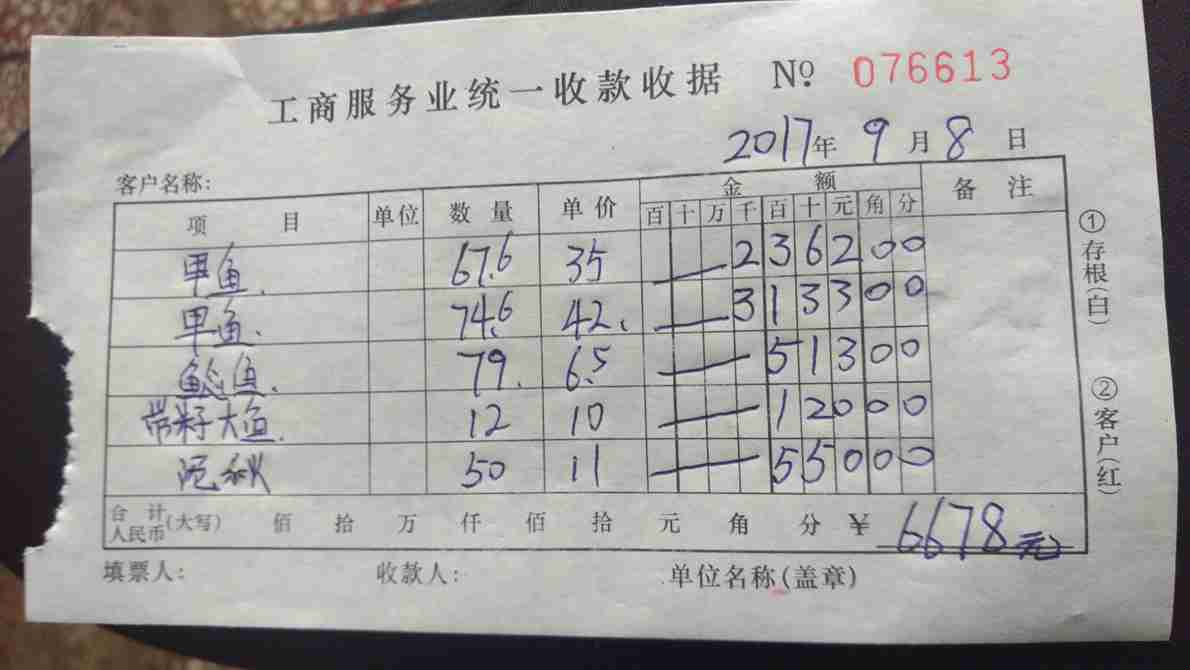 工商服务业统一收款收据 Nº 076613
2017年 9月8日
客户名称:
项目 单位 数量 单价 金额 备注
百十万千百十元角分
甲鱼. 67.6 35 236200
甲鱼. 74.6 42. 313300
鱼. 79. 6.5 51300
带籽大鱼. 12 10 12000
50 11 55000
合计人民币(大写) 佰 拾 万 仟 佰 拾 元 角 分 ¥ 6678元
填票人: 收款人: 单位名称(盖章)
①存根(白)
②客户(红)